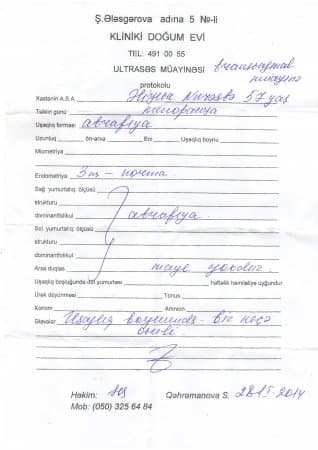 Ş.Ələsgərova adına 5 №-li
KLİNİKİ DOĞUM EVİ
TEL: 491 00 55
ULTRASƏS MÜAYİNƏSİ
protokolu
Xəstənin A.S.A. 57 yaş
Tsiklin günü menopauza
Uşaqlıq forması atrafiya
Uzunluq ön-arxa Eni Uşaqlıq boynu
Miometriya
Endometriya 3m -
Sağ yumurtalıq ölçüsü
strukturu
dominantfolikul atrafiya.
Sol yumurtalıq ölçüsü
strukturu
dominantfolikul
Arxa duqlas maye yoxdur.
Uşaqlıq boşluğunda döl yumurtası həftəlik hamiləliyə uyğundur
Ürək döyünməsi Tonus
Xorion Amnion
Əlavələr Uşaqlıq boynunda - bir neçə
Həkim: Qəhrəmanova S. 28 I - 2014
Mob: (050) 325 64 84